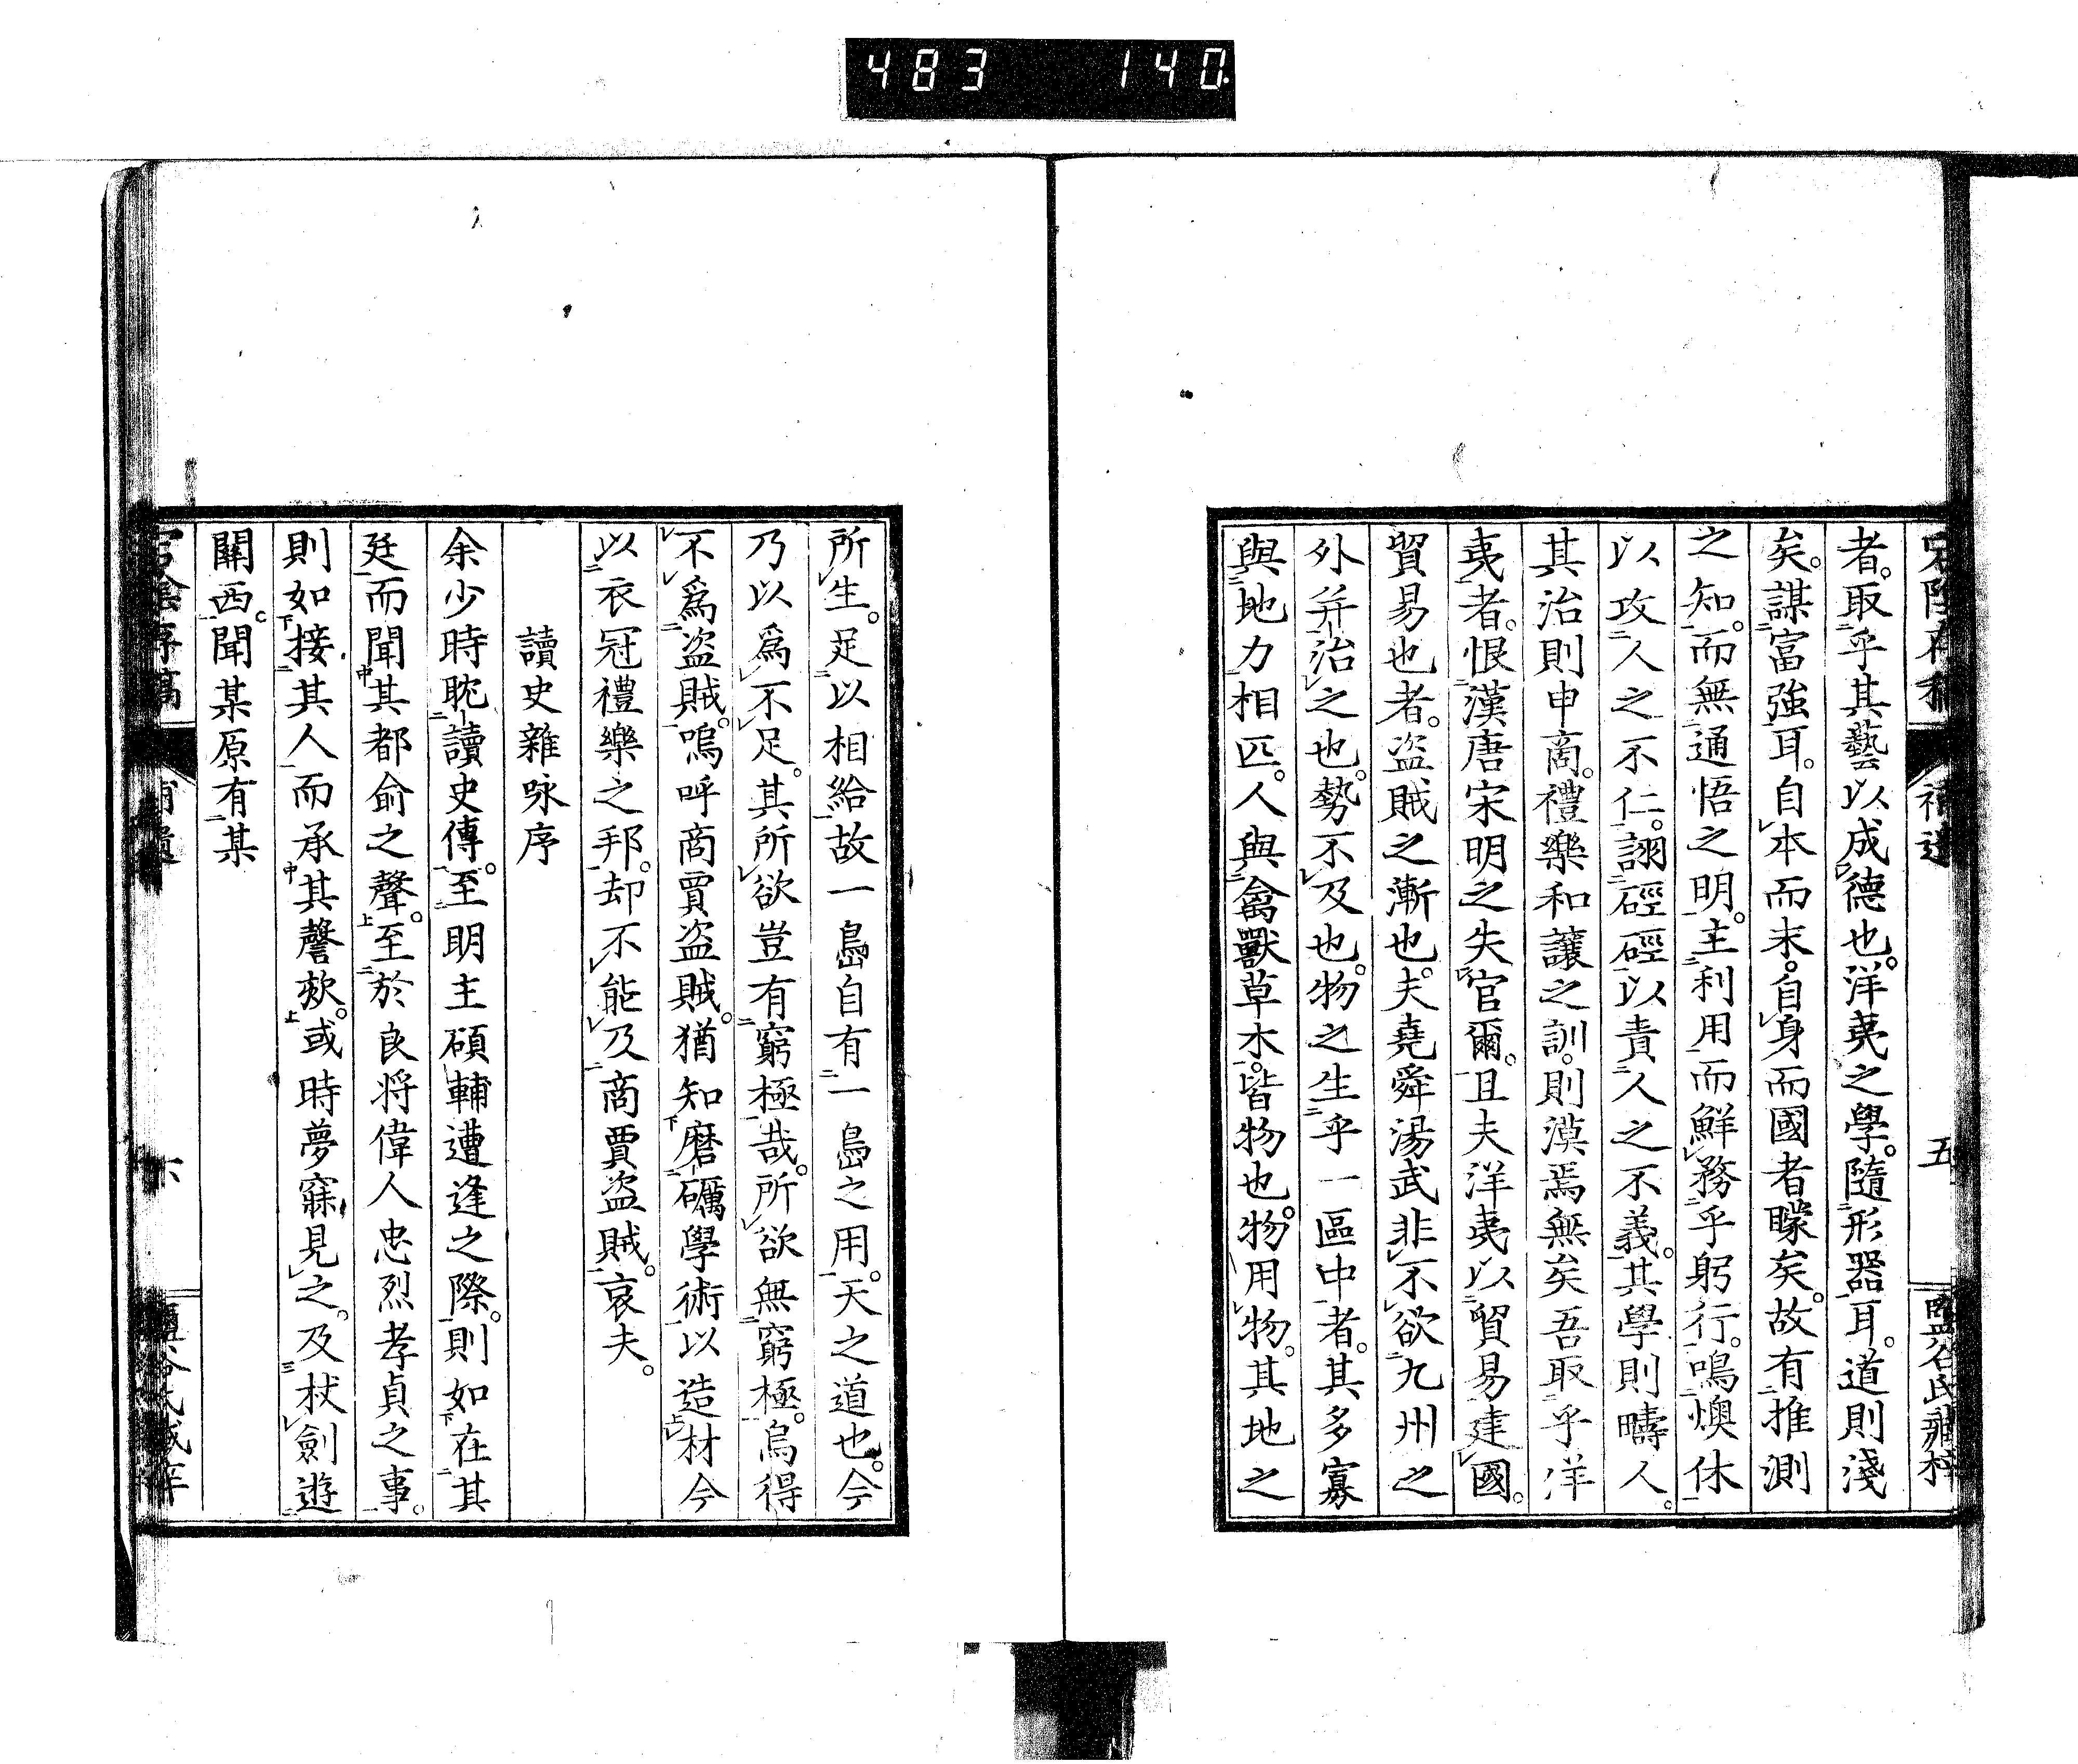 483 140
宕陰存稿 補遺 五 鹽谷氏藏梓
者。取乎其藝以成德也。洋夷之學。隨形器耳。道則淺
矣。謀富強耳。自本而末。自身而國者矇矣。故有推測
之知。而無通悟之明。主利用而鮮務乎躬行。鳴燠休
以攻人之不仁。詡硜硜以責人之不義。其學則疇人。
其治則申商。禮樂和讓之訓。則漠焉無矣吾取乎洋
夷者。恨漢唐宋明之失官爾。且夫洋夷以貿易建國。
貿易也者。盜賊之漸也。夫堯舜湯武非不欲九州之
外并治之也。勢不及也。物之生乎一區中者。其多寡
與地力相匹。人與禽獸草木。皆物也。物用物。其地之
所生。足以相給故一島自有一島之用。天之道也。今
乃以為不足。其所欲豈有窮極哉。所欲無窮極。烏得
不爲盜賊。嗚呼商賈盜賊。猶知磨礪學術以造材今
以衣冠禮樂之邦。却不能及商賈盜賊。哀夫。
讀史雜咏序
余少時耽讀史傳。至明主碩輔遭逢之際。則如在其
廷而聞其都俞之聲。至於良将偉人忠烈孝貞之事。
則如接其人而承其謦欬。或時夢寐見之。及杖劍遊
關西。聞某原有某
宕陰存稿 補遺 六 鹽谷氏藏梓